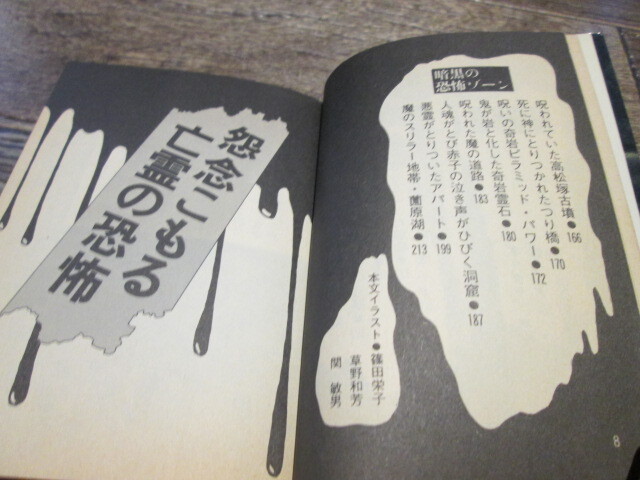 暗黒の
恐怖ゾーン
呪われていた高松塚古墳●166
死に神にとりつかれたつり橋●170
呪いの奇岩ピラミッド・パワー●172
鬼が岩と化した奇岩霊石●180
呪われた魔の道路●183
人魂がとび赤子の泣き声がひびく洞窟●187
悪霊がとりついたアパート●199
魔のスリラー地帯・薗原湖●213
本文イラスト●篠田栄子
草野和芳
関敏男
8
怨念こもる
亡霊の恐怖